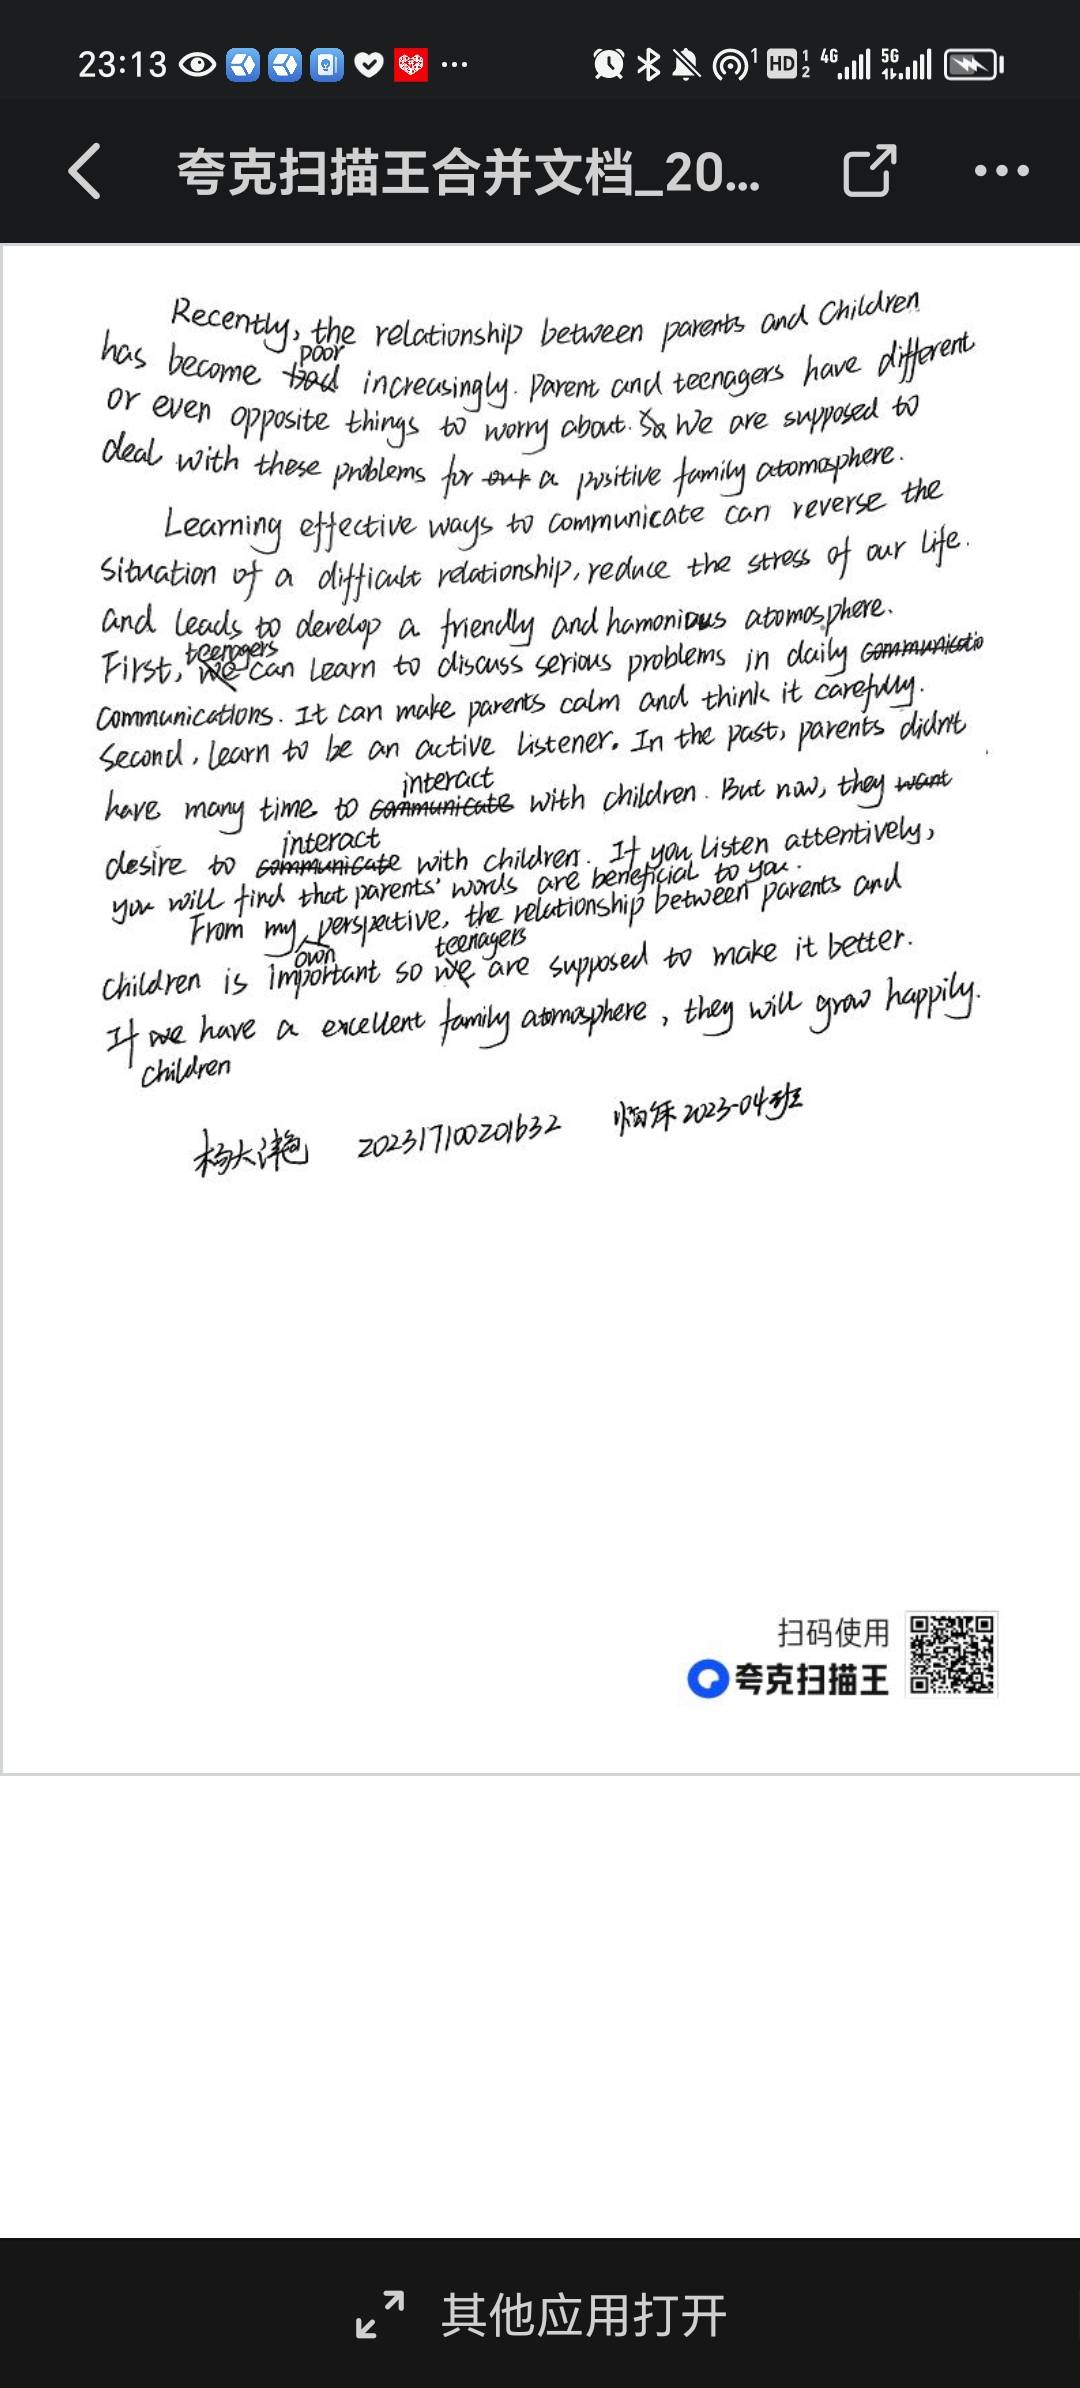 23:13 1 HD 1 2 4G 5G
夸克扫描王合并文档_20...
Recently, the relationship between parents and Children
has become poor increasingly. Parent and teenagers have different
or even opposite things to worry about. We are supposed to
deal with these problems for a positive family atomosphere.
Learning effective ways to communicate can reverse the
situation of a difficult relationship, reduce the stress of our life.
and leads to develop a friendly and hamonious atomosphere.
First, teenagers can learn to discuss serious problems in daily
communications. It can make parents calm and think it carefully.
Second, learn to be an active listener. In the past, parents didn't
have many time to interact with children. But now, they
desire to interact with children. If you listen attentively,
you will find that parents' words are beneficial to you.
From my own perspective, the relationship between parents and
children is important so teenagers are supposed to make it better.
If children have a excellent family atomosphere, they will grow happily.
杨大 202317100201632 2023-04班
扫码使用
夸克扫描王
其他应用打开